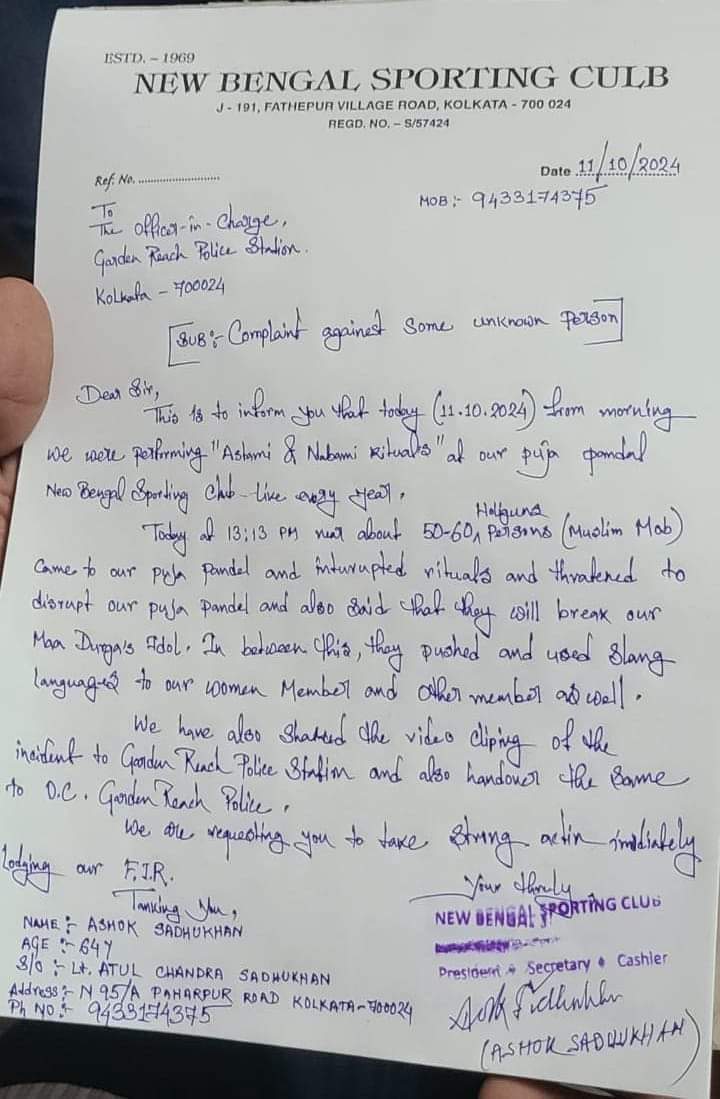 ESTD. – 1969
NEW BENGAL SPORTING CULB
J - 191, FATHEPUR VILLAGE ROAD, KOLKATA - 700 024
REGD. NO. – S/57424
Ref. No. ............................
Date 11/10/2024
MOB :- 9433174375
To
The Officer-in-Charge,
Garden Reach Police Station.
Kolkata – 700024
[SUB :- Complaint against some unknown Person]
Dear Sir,
This is to inform you that today (11.10.2024) from morning
we were performing "Astami & Nabami Rituals" at our puja pandal
New Bengal Sporting Club – like every year.
Today at 13:13 PM near about 50-60 Holiguns Persons (Muslim Mob)
Came to our puja Pandel and inturupted rituals and thratened to
disrupt our puja Pandel and also said that they will break our
Maa Durga's Idol. In between this, they pushed and used slang
languages to our women Member and other member as well.
We have also Shared the video cliping of the
incident to Garden Reach Police Station and also handover the same
to D.C. Garden Reach Police.
We are requesting you to take strong actin imidiately
Lodging our F.I.R.
Tanking You,
NAME :- ASHOK SADHUKHAN
AGE :- 64Y
S/O :- Lt. ATUL CHANDRA SADHUKHAN
Address :- N 95/A PAHARPUR ROAD KOLKATA-700024
Ph NO. :- 9433174375
Your thruly
NEW BENGAL SPORTING CLUB
President Secretary Cashier
(ASHOK SADHUKHAN)